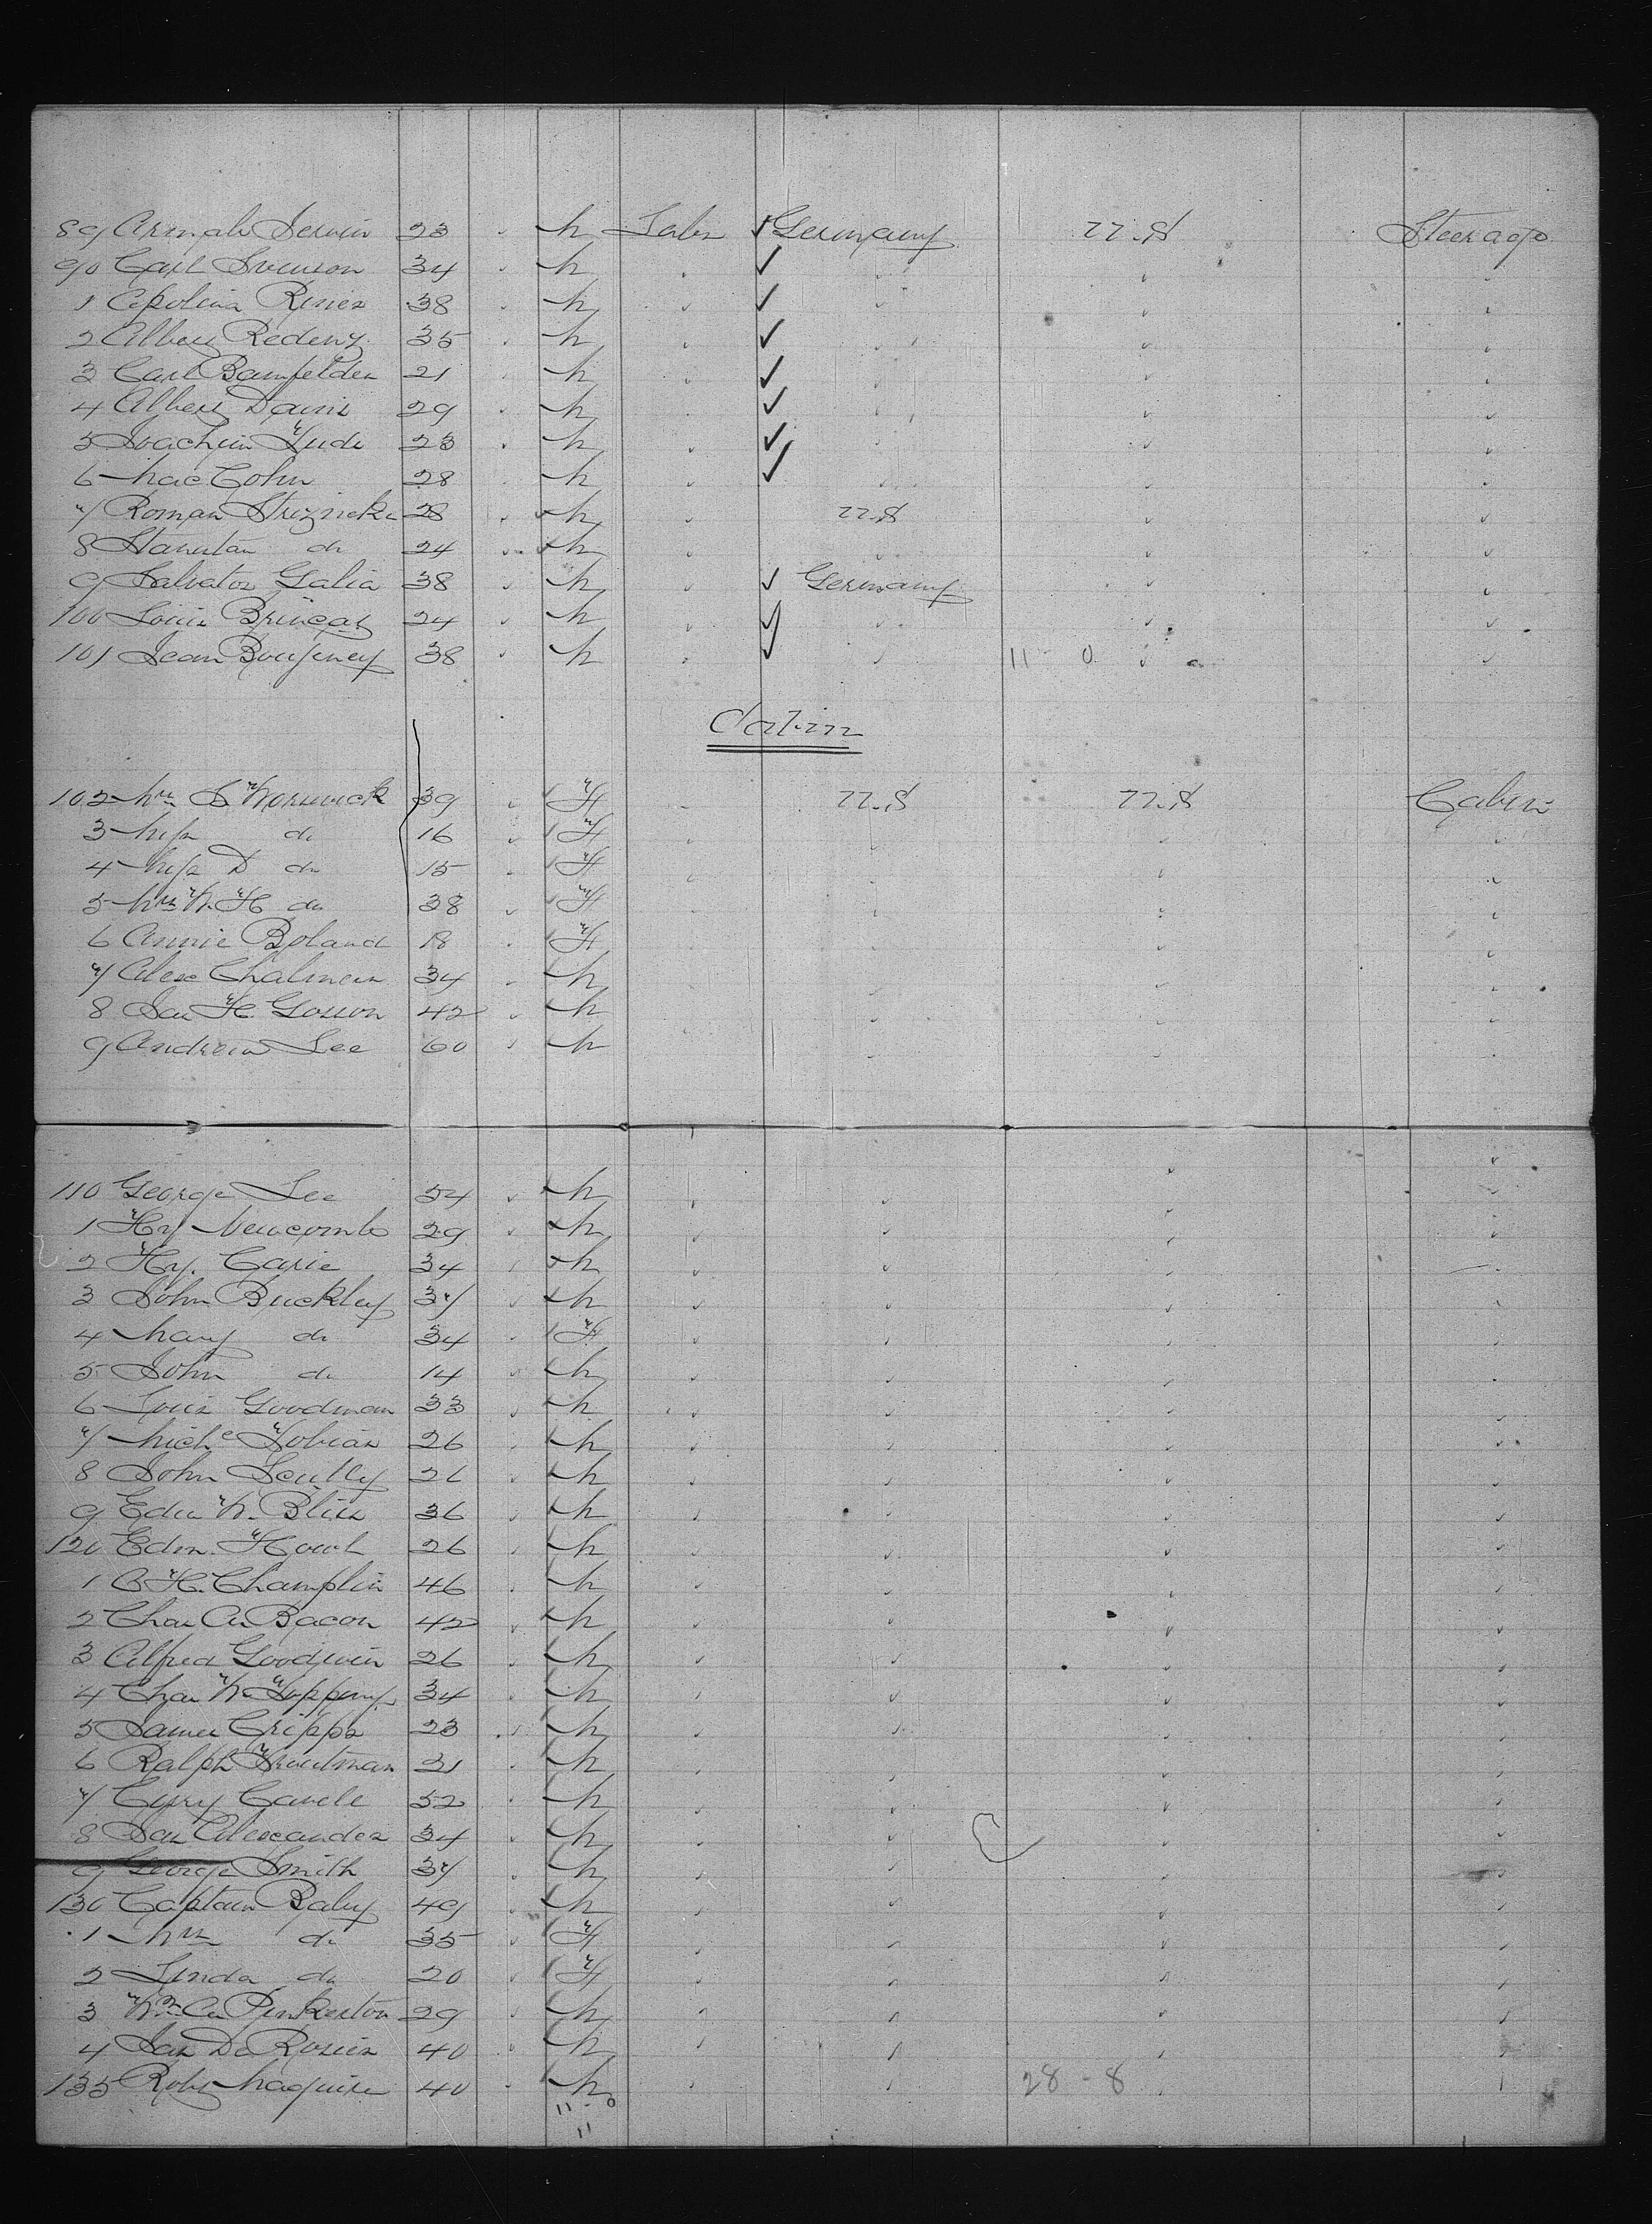 89 Armah Serwin 23 M Labr ✓ Germany U.S Steerage
90 Carl Svenson 34 M ✓
1 Apolina Renier 38 M ✓
2 Albert Redeny 35 M ✓
3 Carl Bamfelder 21 M ✓
4 Albert Davis 29 M ✓
5 Joachim Tude 23 M ✓
6 Mac Cohn 28 M ✓
7 Roman 28 M U.S
8 do 24 M
9 Salvator Galia 38 M ✓ Germany
100 Louis Brincat 24 M ✓
101 Jean 38 M ✓ 11 - 0
Cabin
102 Mrs S Warwick 39 F U.S U.S Cabin
3 Miss do 16 F
4 Miss D do 15 F
5 Mrs W. H do 38 F
6 Annie Boland 18 F
7 Alex Chalmers 34 M
8 Jas H. Gosson 42 M
9 Andrew Lee 60 M
110 George Lee 54 M
1 Hy Newcomb 29 M
2 Hy. Carie 34 M
3 John Buckley 37 M
4 Mary do 34 F
5 John do 14 M
6 Louis Goodman 33 M
7 Michl Tobias 26 M
8 John Scully 26 M
9 Edw W. Bliss 36 M
120 Edm. 26 M
1 C H. Champlin 46 M
2 Chas A Bacon 42 M
3 Alfred Goodwin 26 M
4 Chas W Topping 34 M
5 James Cripps 23 M
6 Ralph Troutman 31 M
7 52 M
8 Jas Alexander 34 M
9 George Smith 37 M
130 Captain Raby 49 M
1 Mrs do 35 F
2 Linda do 20 F
3 Wm A Pinkerton 29 M
4 Jas De Rosier 40 M
135 Robt Maguire 40 M 28 - 8
11 - 0
11